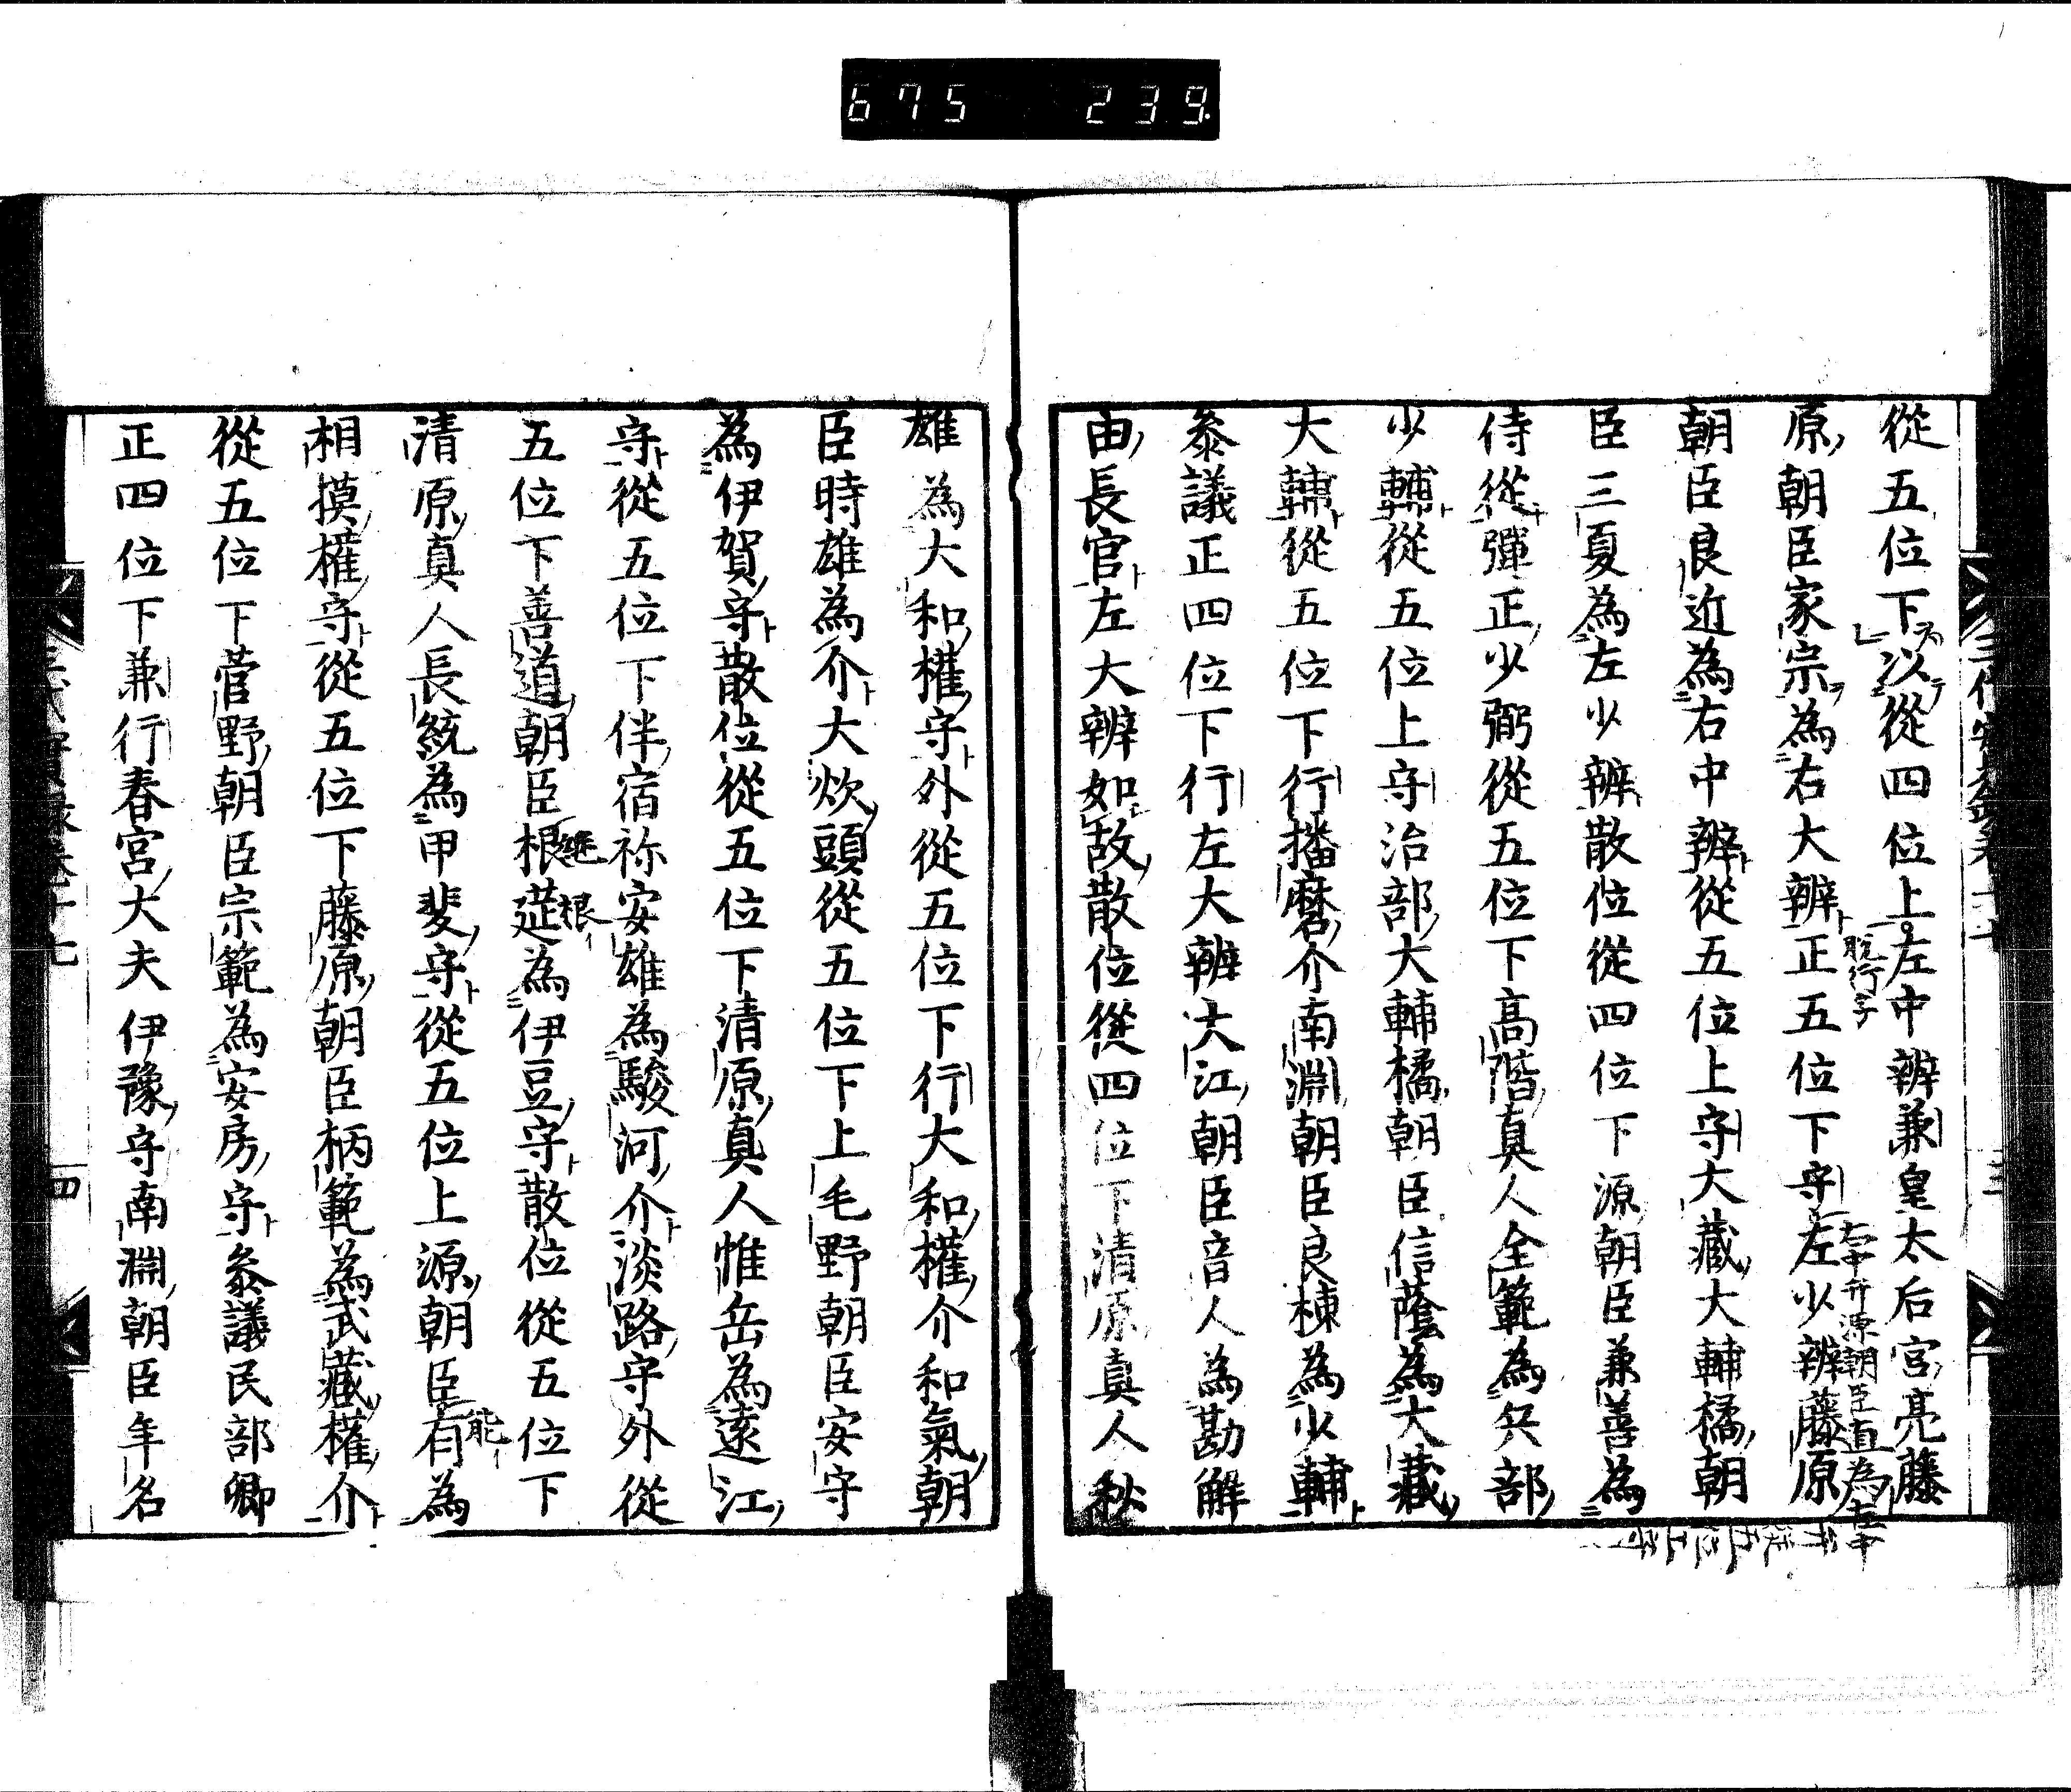 675 239
從五位下以從四位上左中辨兼皇太后宮亮藤
脫行字
原朝臣家宗為右大辨正五位下守左少辨藤原
左中弁源朝臣直為右中
弁從五位上守
朝臣良近為右中辨從五位上守大藏大輔橘朝
臣三夏為左少辨散位從四位下源朝臣兼善為
侍從彈正少弼從五位下高階真人全範為兵部
少輔從五位上守治部大輔橘朝臣信蔭為大藏
大輔從五位下行播磨介南淵朝臣良棟為少輔
叅議正四位下行左大辨大江朝臣音人為勘解
由長官左大辨如故散位從四位下清原真人秋
雄為大和權守外從五位下行大和權介和氣朝
臣時雄為介大炊頭從五位下上毛野朝臣安守
為伊賀守散位從五位下清原真人惟岳為遠江
守從五位下伴宿祢安雄為駿河介淡路守外從
五位下善道朝臣根莚為伊豆守散位從五位下
継根
清原真人長統為甲斐守從五位上源朝臣有為
能
相摸權守從五位下藤原朝臣柄範為武藏權介
從五位下菅野朝臣宗範為安房守叅議民部卿
正四位下兼行春宮大夫伊豫守南淵朝臣年名
四